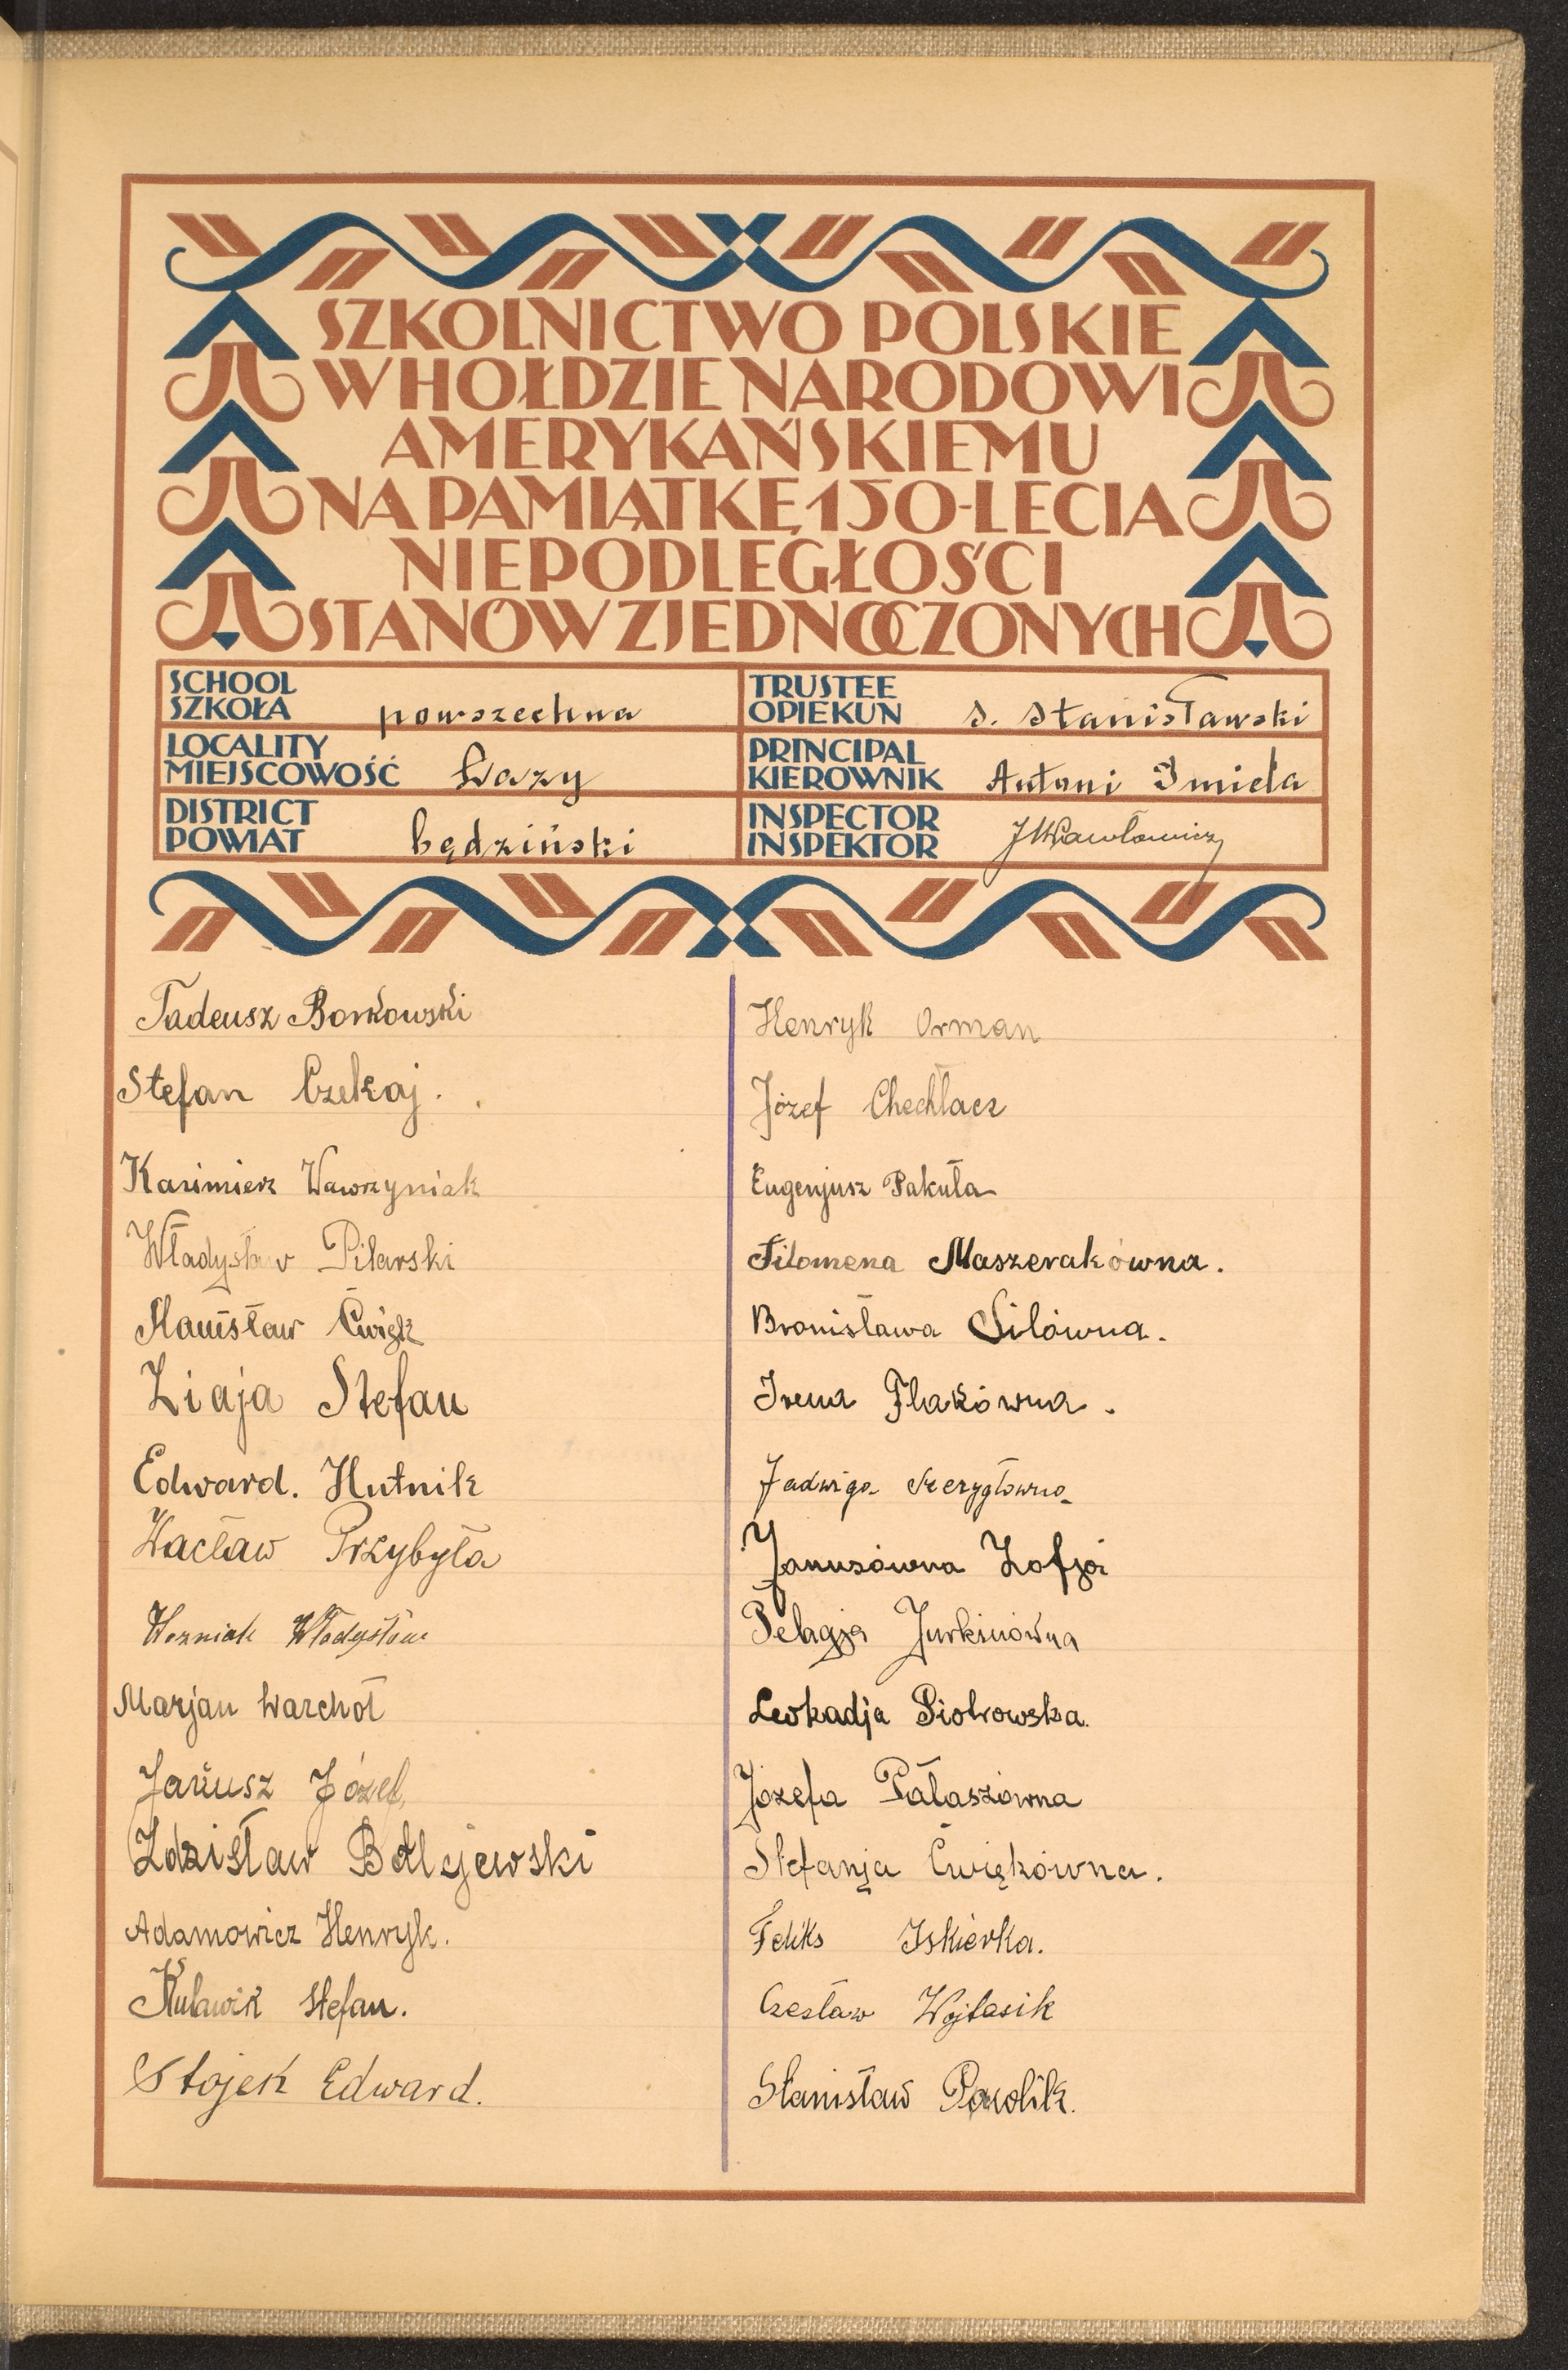 SZKOLNICTWO POLSKIE
W HOŁDZIE NARODOWI
AMERYKAŃSKIEMU
NA PAMIĄTKĘ 150-LECIA
NIEPODLEGŁOŚCI
STANÓW ZJEDNOCZONYCH
SCHOOL
SZKOŁA powszechna
TRUSTEE
OPIEKUN S. Stanisławski
LOCALITY
MIEJSCOWOŚĆ Łazy
PRINCIPAL
KIEROWNIK Antoni Imiela
DISTRICT
POWIAT będziński
INSPECTOR
INSPEKTOR
Tadeusz Borkowski
Stefan Czekaj.
Kazimierz Wawrzyniak
Władysław Pilarski
Stanisław Ćwięk
Ziaja Stefan
Edward. Hutnik
Wacław Przybyła
Wozniak Władysław
Marjan Warchoł
Janusz Józef
Zdzisław
Adamowicz Henryk.
Kulawik Stefan.
Stojek Edward.
Henryk Orman
Józef Chechłacz
Eugenjusz Pakuła
Filomena Maszerakówna.
Bronisława Silówna.
Irena Flakówna.
Jadwiga
Janusówna Zofja
Pelagja
Leokadja Piotrowska.
Józefa Pałaszówna
Stefanja Ćwiękówna.
Feliks Iskierka.
Czesław Wojtasik
Stanisław Pawolik.